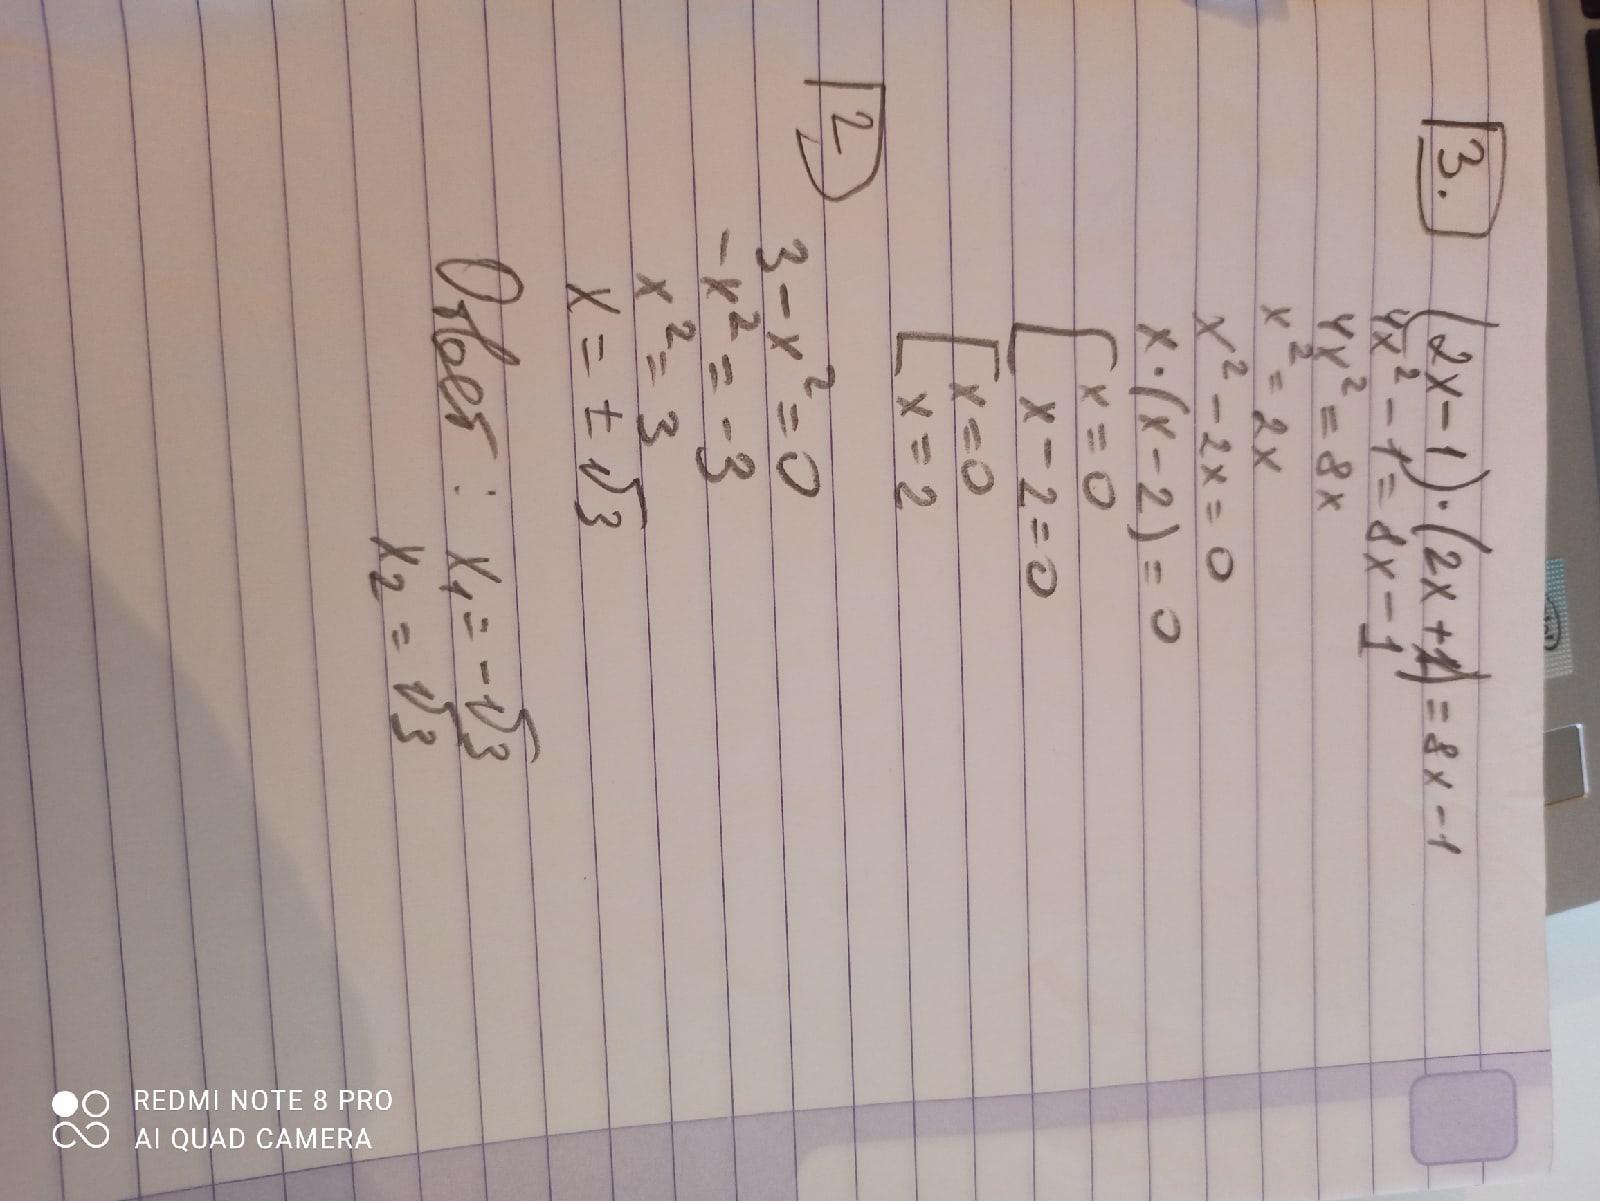 3.
(2x-1)·(2x+1)=8x-1
4x²-1=8x-1
4x²=8x
x²=2x
x²-2x=0
x·(x-2)=0
x=0
x-2=0
x=0
x=2
2
3-x²=0
-x²=-3
x²=3
x=±√3
Ответ: x₁=-√3
x₂=√3
REDMI NOTE 8 PRO
AI QUAD CAMERA